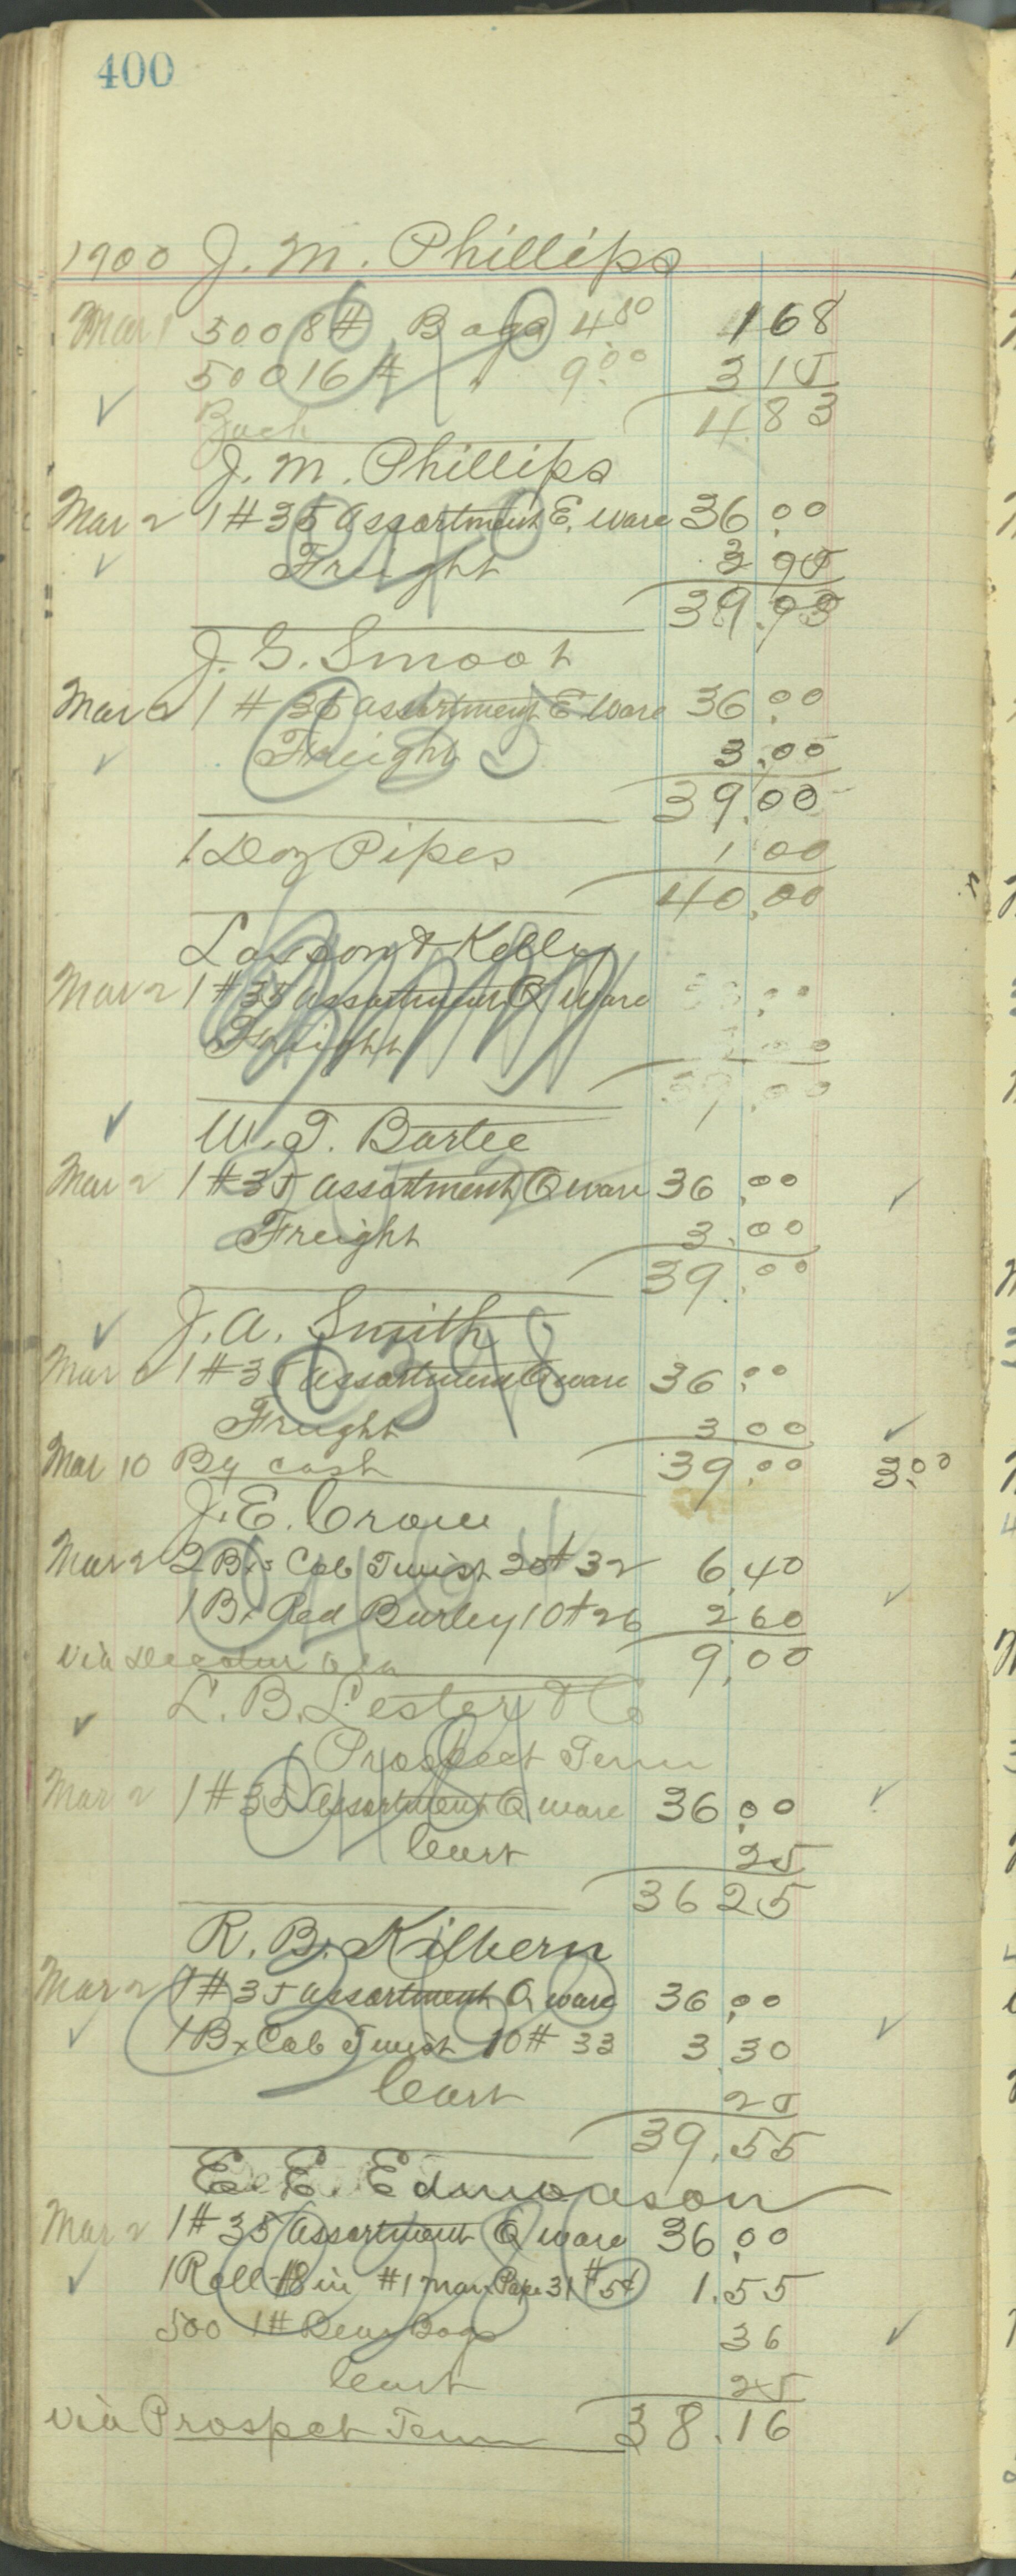 400
1900 J. M. Phillips
Mar 1 500 8# Bags 4 80 1 68
500 16 # " 9.00 3 15
4.83
J. M. Phillips
Mar 2 1 # 35 assortment E. Ware 36.00
Freight 3 95
39.95
J. G. Smoot
Mar 2 1 # 35 assortment E Ware 36.00
Freight 3.00
39.00
1 Doz Pipes 1 00
40.00
& Kelly
Mar 2 1 # 35 assortment Q Ware 36.00
Freight 3 00
39.00
W. T. Bartee
Mar 2 1 # 35 assortment Q ware 36.00
Freight 3.00
39.00
J. A. Smith
Mar 2 1 # 35 assortment Q ware 36.00
Freight 3 00
Mar 10 By cash 39.00 3.00
J. E. Crow
Mar 2 2 Bxs Cob Twist 20# 32 6.40
1 Bx Red Burley 10# 26 2 60
via 9.00
L. B. Lester & Co
Prospect Tenn
Mar 2 1 # 35 assortment Q ware 36.00
Cart 25
36 25
R. B. Kilbern
Mar 2 1 # 35 assortment Q ware 36.00
1 Bx Cob Twist 10# 33 3.30
Cart 25
39.55
E. E. Edmonson
Mar 2 1 # 35 assortment Q ware 36.00
1 Roll 18 in #1 31# 5¢ 1.55
500 1# Bags 36
Cart 25
via Prospect Tenn 38.16